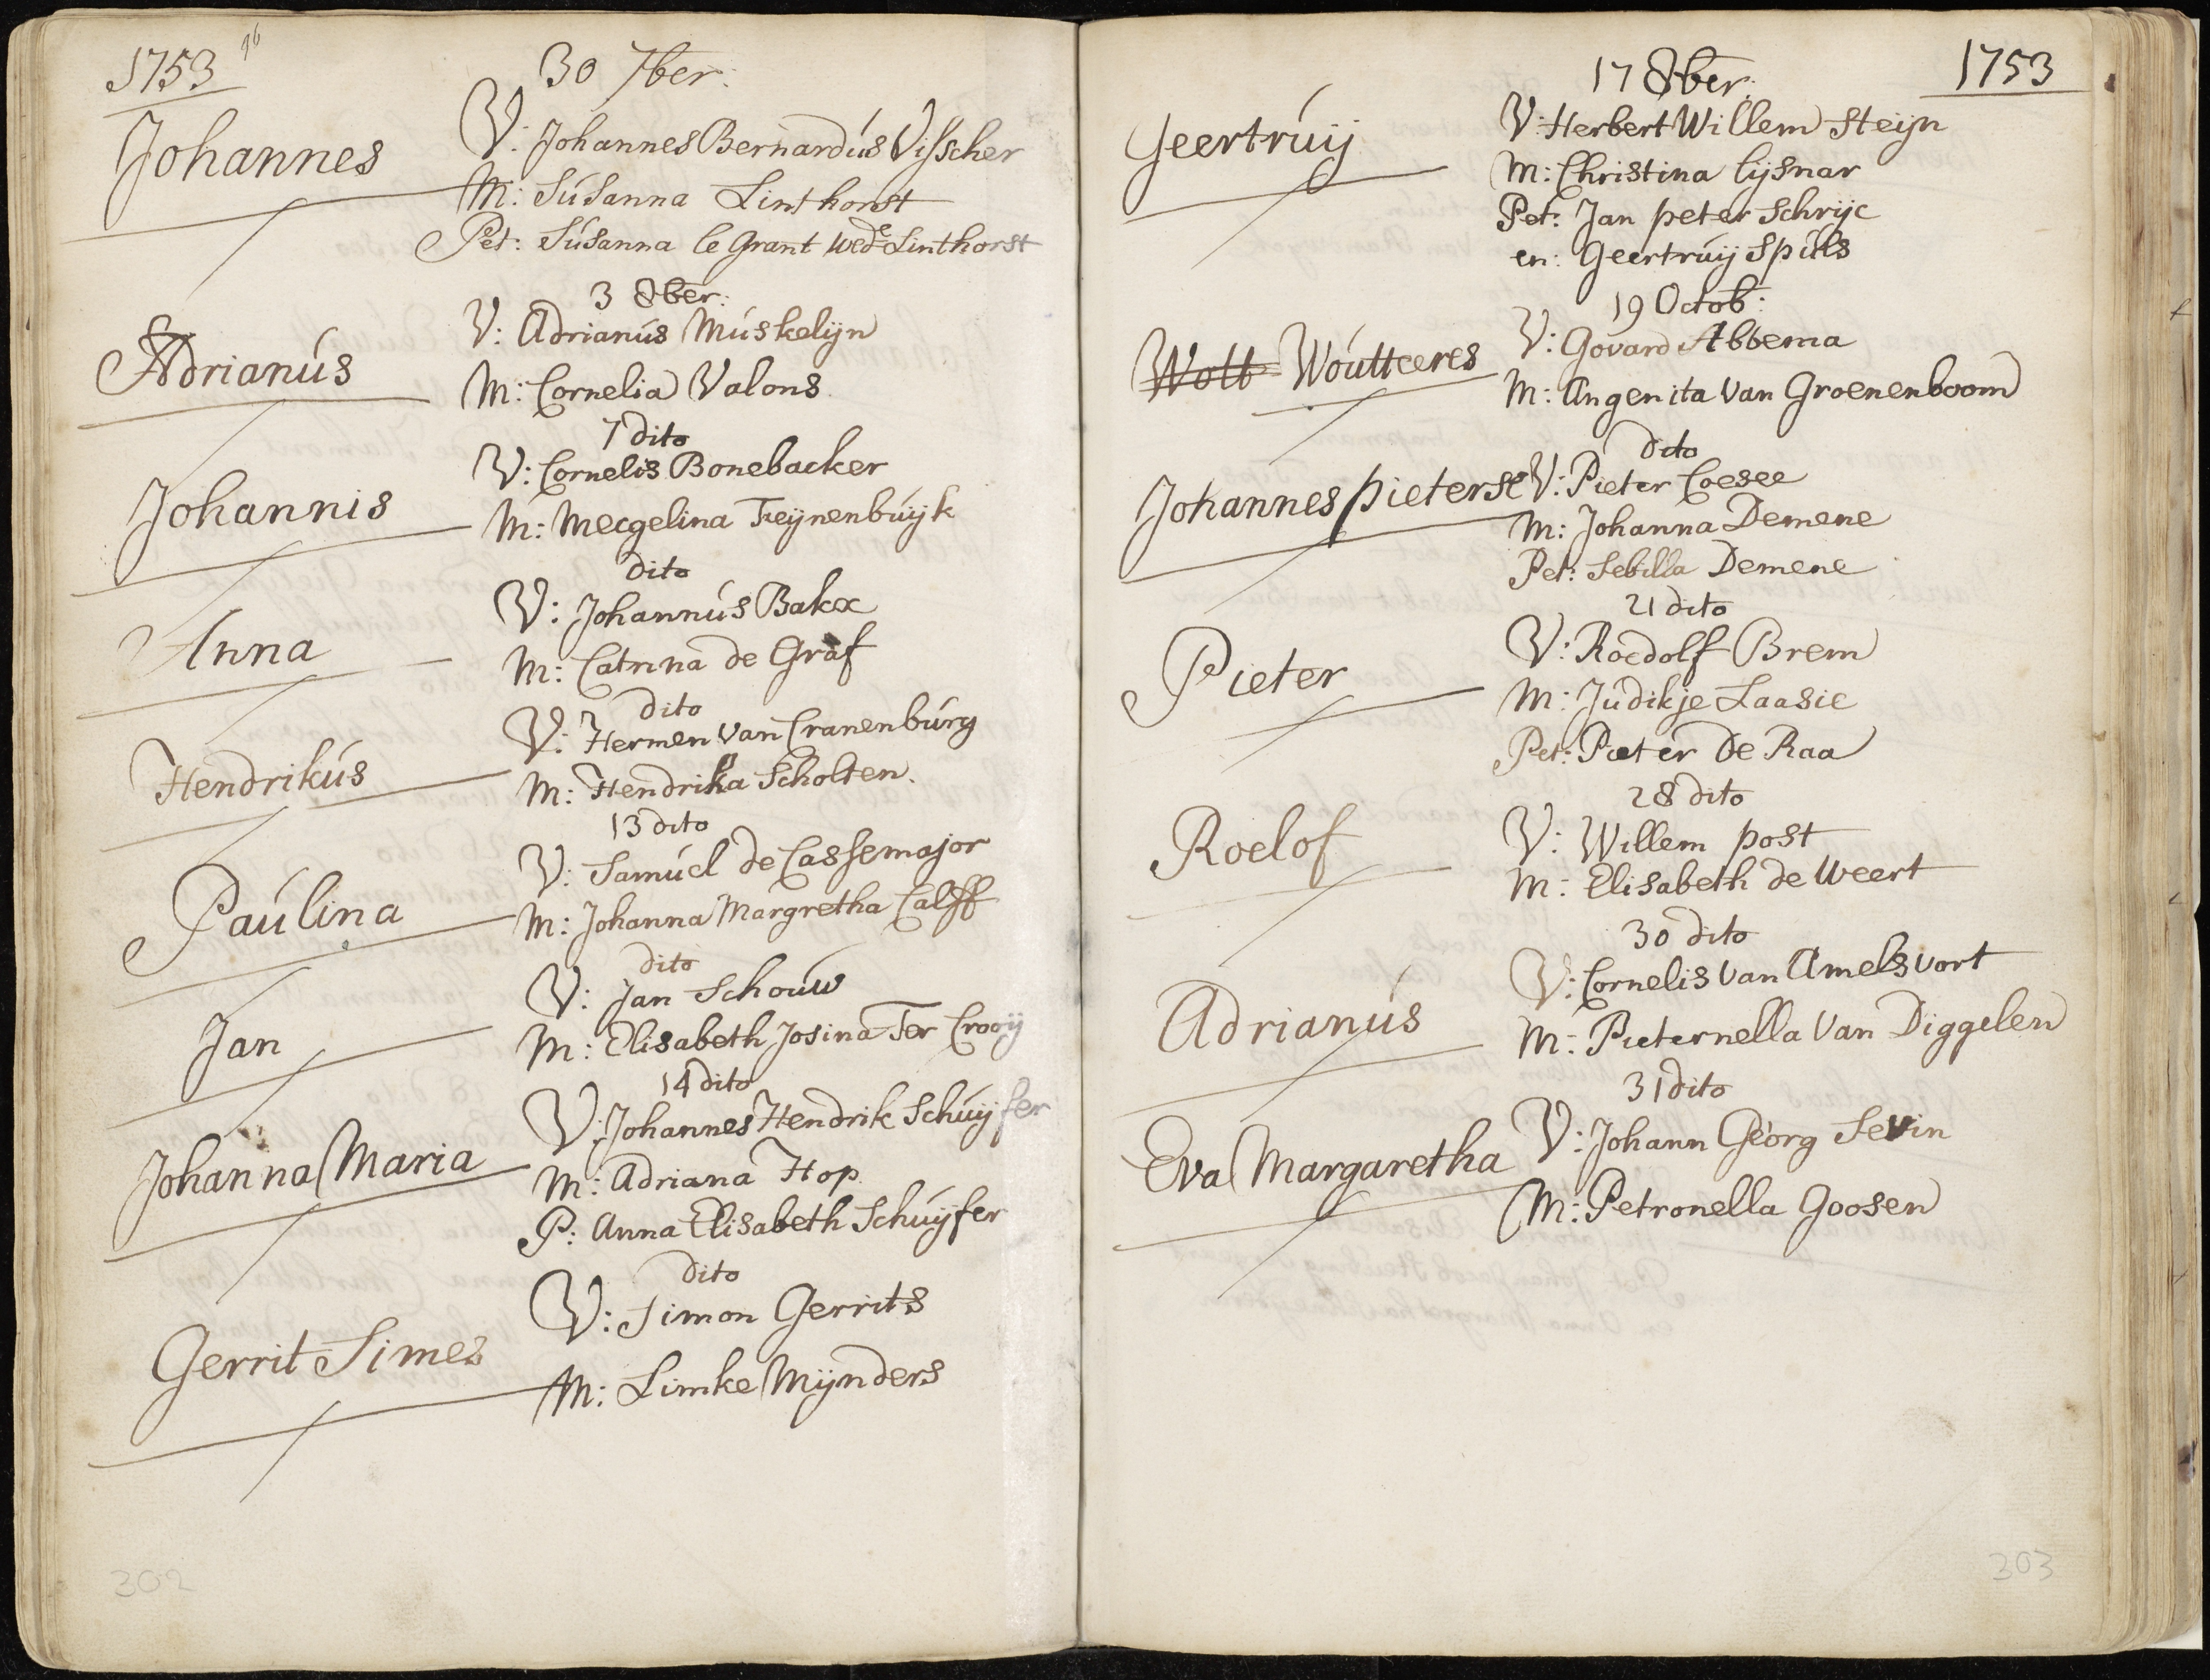 1753
30 7ber:
Johannes
V: Johannes Bernardús Visscher
M: Súsanna Linthorst
Pet: Súsanna le Grant wede Linthorst
3 8ber:
Adrianús
V: Adrianús Múskelijn
M: Cornelia Valons
7 dito
Johannis
V: Cornelis Bonebacker
M: Mecgelina Treijnenbúijk
dito
Anna
V: Johannús Bakx
M: Catrina de Graf
dito
Hendrikús
V: Hermen van Cranenbúrg
M: Hendrika Scholten.
13 dito
Paúlina
V: Samúel de Cassemajor
M: Johanna Margretha Calff
dito
Jan
V: Jan Schoúw
M: Elisabeth Josina Ter Crooij
14 dito
Johanna Maria
V: Johannes Hendrik Schúijfer
M: Adriana Hop.
P: Anna Elisabeth Schúijfer
dito
Gerrit Simes
V: Simon Gerrits
M: Limke Mijnders
302
1753
17 8ber:
Geertrúij
V: Herbert Willem Steijn
M: Christina lijsnar
Pet: Jan peter Schrijc
en: Geertrúij Spúls
19 Octob:
Wott Woútteeres
V: Govard Abbema
M: Angenita van Groenenboom
dito
Johannes pieterse
V: Pieter Coesee
M: Johanna Demene
Pet: Sebilla Demene
21 dito
Pieter
V: Roedolf Brem
M: Júdikje Laasie
Pet: Pieter de Raa
28 dito
Roelof
V: Willem post
M: Elisabeth de Weert
30 dito
Adrianús
V: Cornelis van Amelsvort
M: Pieternella van Diggelen
31 dito
Eva Margaretha
V: Johann Georg Sevin
M: Petronella Goosen
303